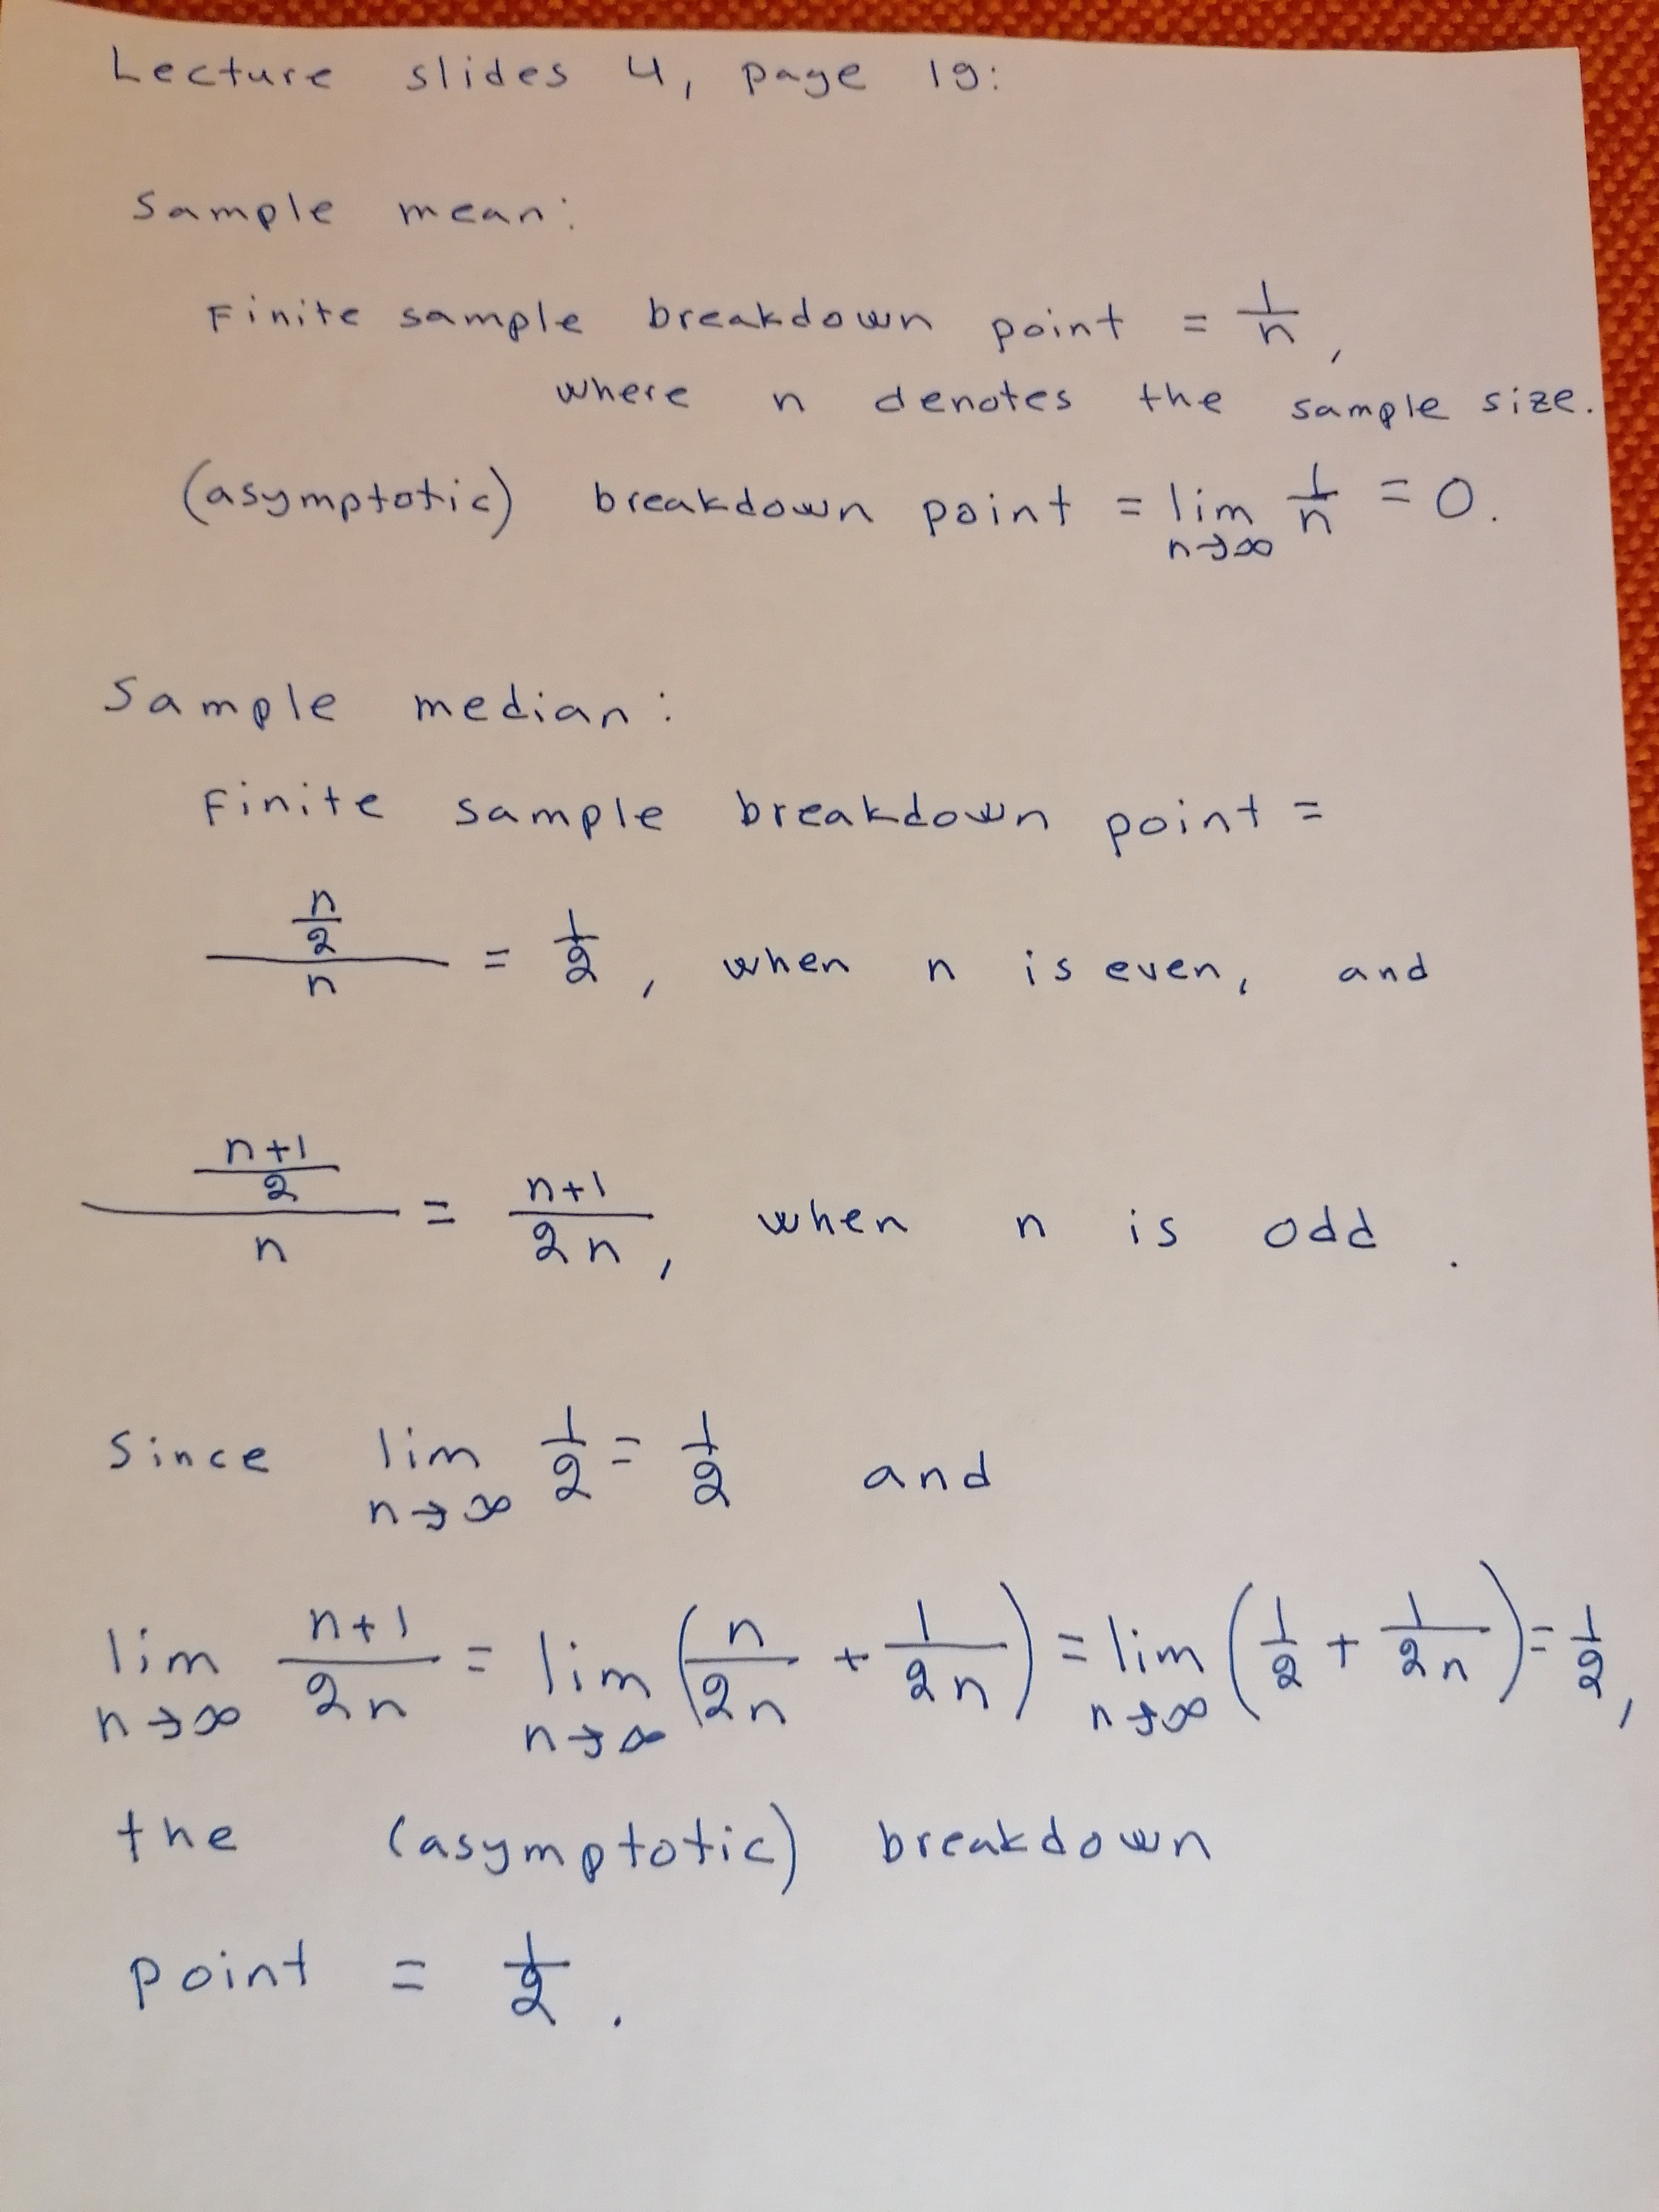 Lecture slides 4, page 19:
Sample mean:
Finite sample breakdown point = 1/n,
where n denotes the sample size.
(asymptotic) breakdown point = lim n→∞ 1/n = 0.
Sample median:
Finite sample breakdown point =
(n/2)/n = 1/2, when n is even, and
((n+1)/2)/n = (n+1)/(2n), when n is odd.
Since lim n→∞ 1/2 = 1/2 and
lim n→∞ (n+1)/(2n) = lim n→∞ (n/(2n) + 1/(2n)) = lim n→∞ (1/2 + 1/(2n)) = 1/2,
the (asymptotic) breakdown
point = 1/2.